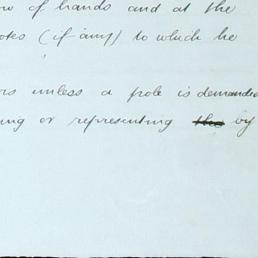 of hands and at the
(if any) to which he
unless a pole is demanded
or representing by